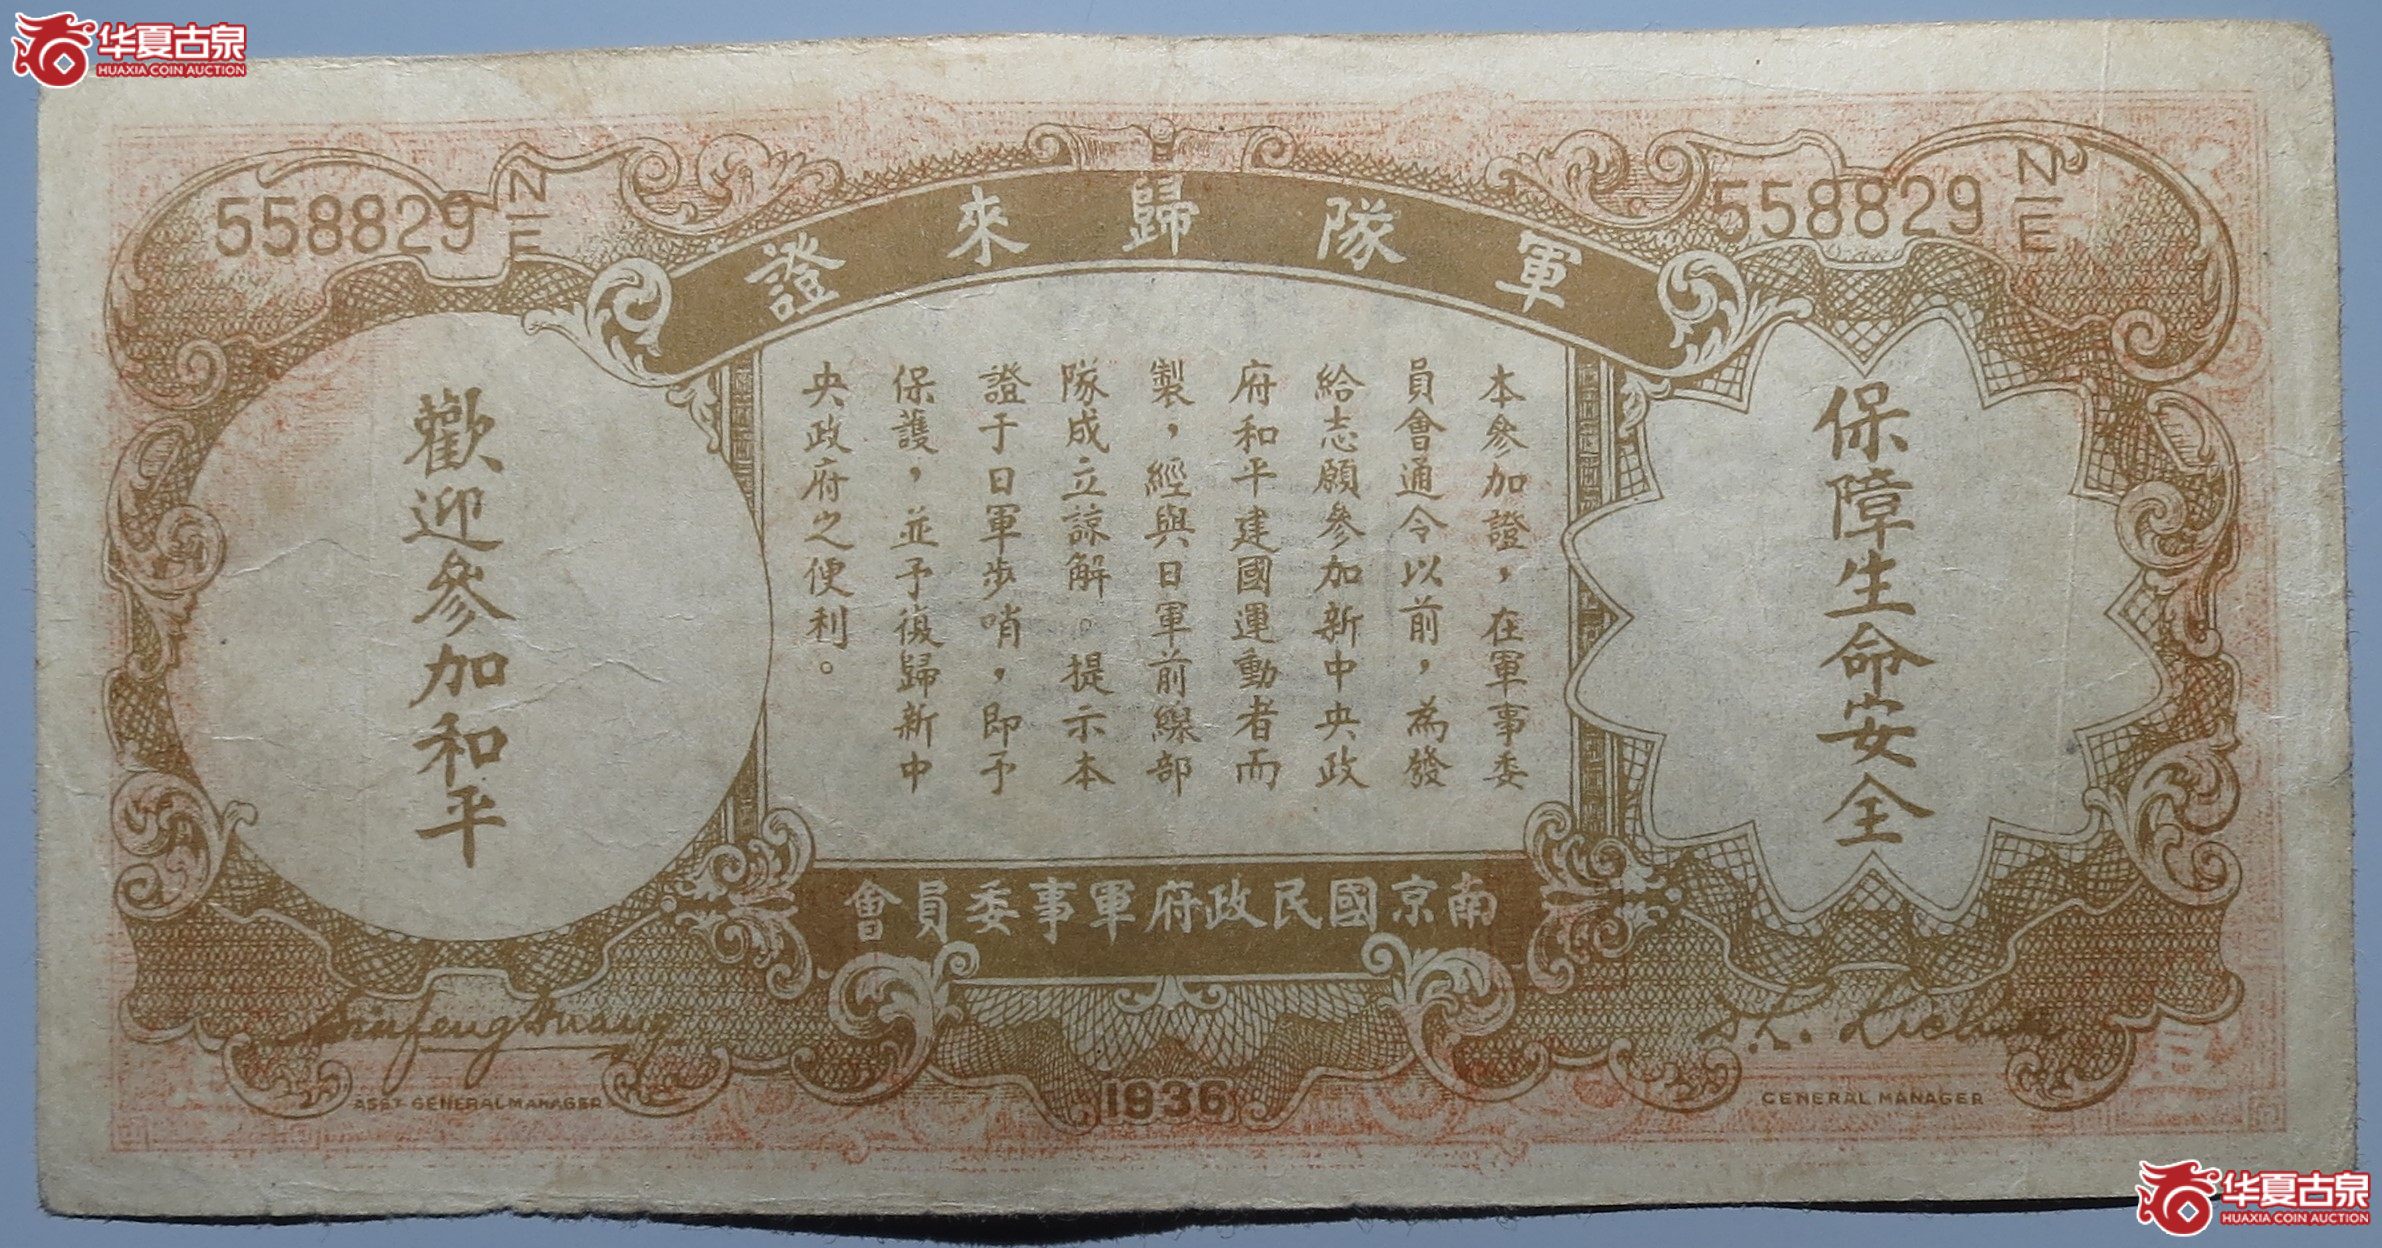 华夏古泉
HUAXIA COIN AUCTION
558829 N/E
558829 N/E
軍隊歸來證
保障生命安全
本參加證，在軍事委
員會通令以前，為發
給志願參加新中央政
府和平建國運動者而
製，經與日軍前線部
隊成立諒解。提示本
證于日軍步哨，即予
保護，並予復歸新中
央政府之便利。
歡迎參加和平
南京國民政府軍事委員會
ASS'T GENERAL MANAGER
1936
GENERAL MANAGER
华夏古泉
HUAXIA COIN AUCTION